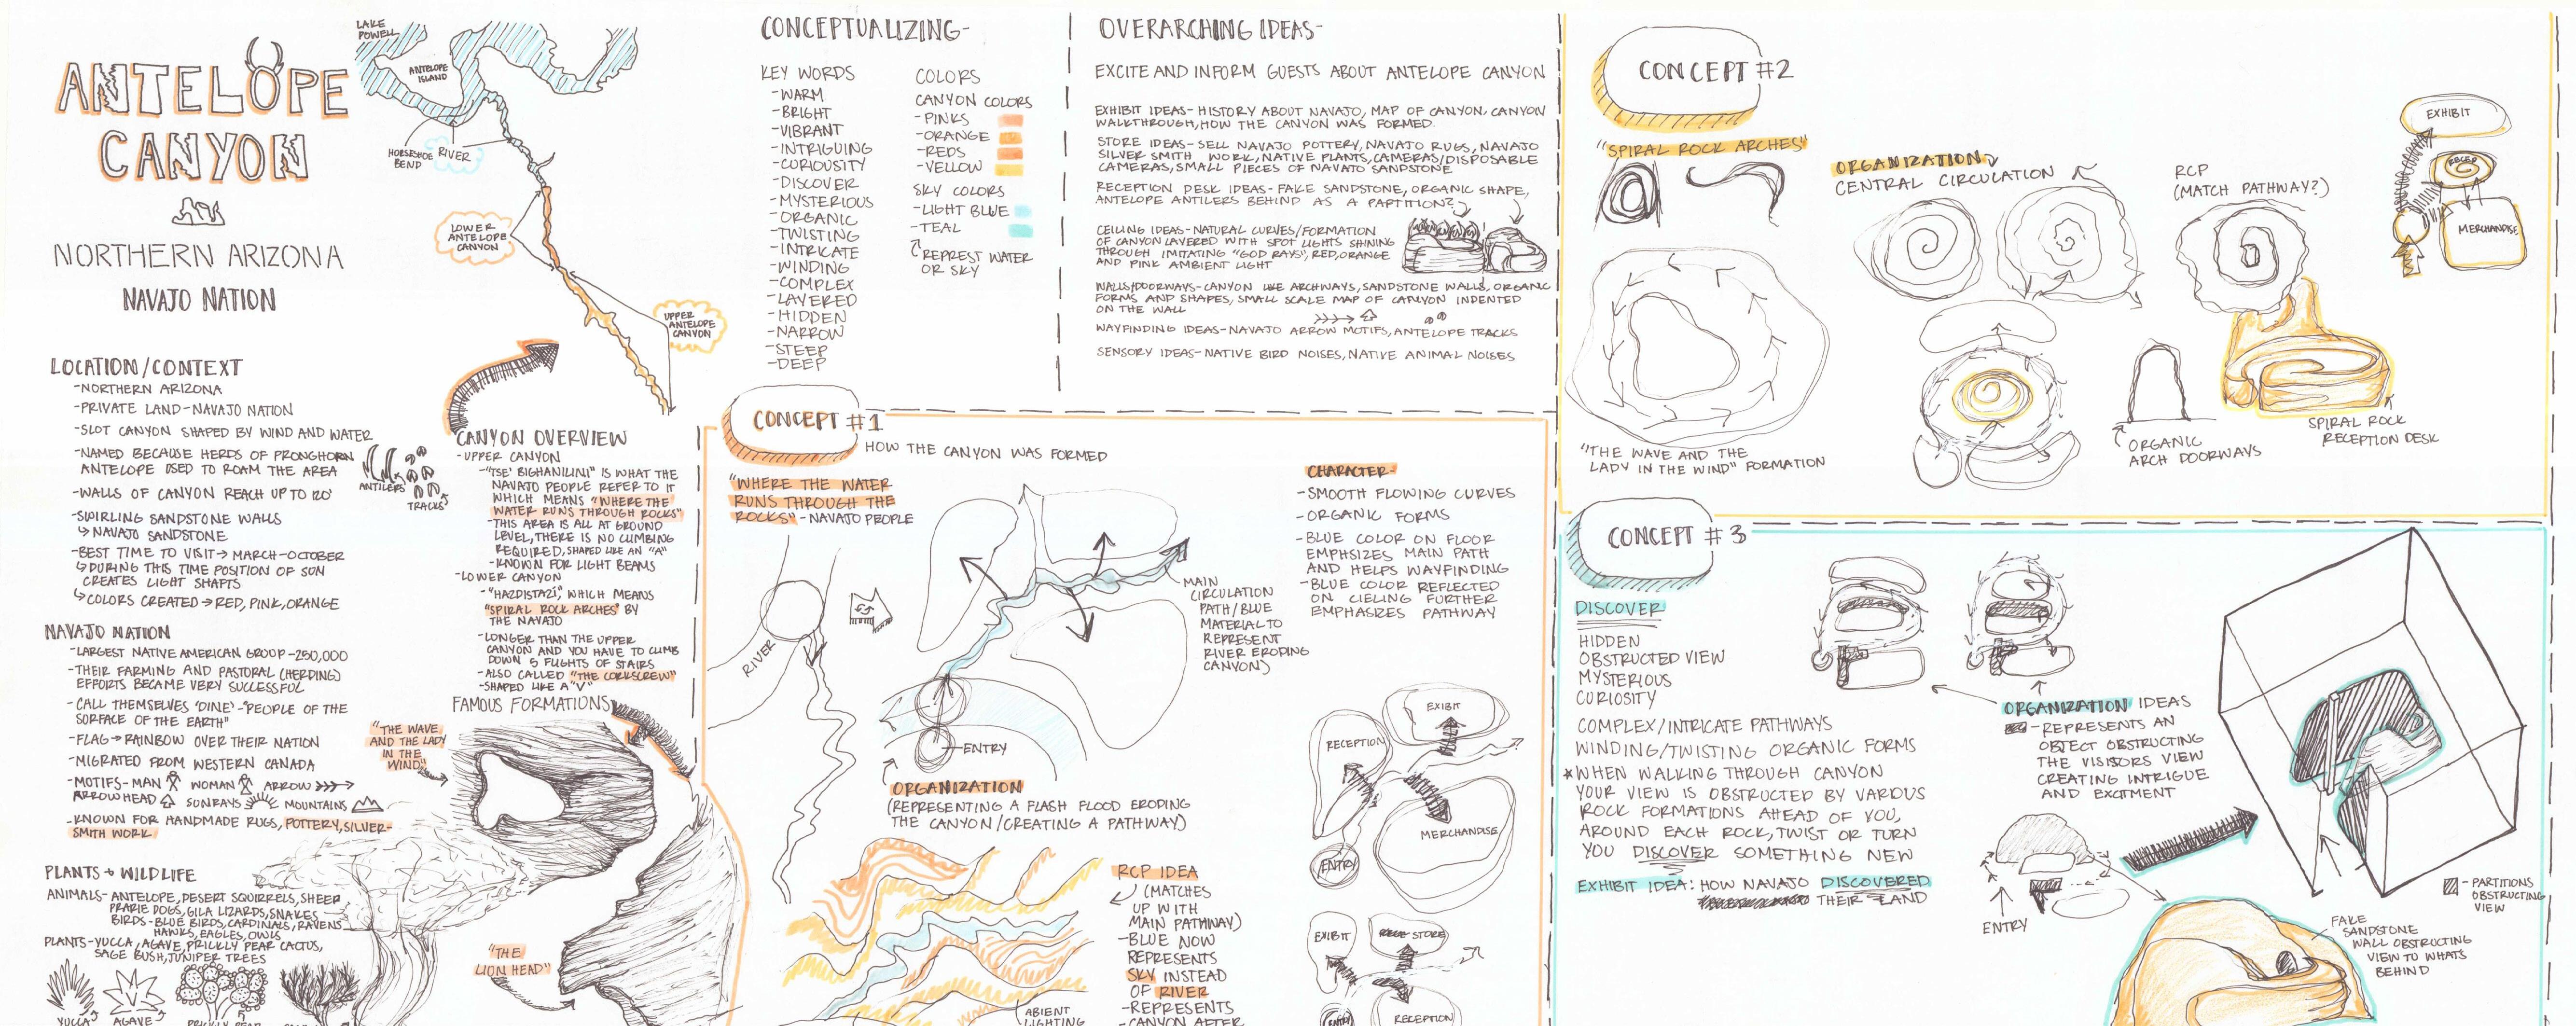 ANTELOPE
CANYON
NORTHERN ARIZONA
NAVAJO NATION
LAKE
POWELL
ANTELOPE
ISLAND
HORSESHOE
BEND
RIVER
LOWER
ANTELOPE
CANYON
UPPER
ANTELOPE
CANYON
LOCATION/CONTEXT
-NORTHERN ARIZONA
-PRIVATE LAND-NAVAJO NATION
-SLOT CANYON SHAPED BY WIND AND WATER
-NAMED BECAUSE HERDS OF PRONGHORN
ANTELOPE USED TO ROAM THE AREA
ANTILERS
TRACKS
-WALLS OF CANYON REACH UP TO 120'
-SWIRLING SANDSTONE WALLS
↳NAVAJO SANDSTONE
-BEST TIME TO VISIT→MARCH-OCTOBER
↳DURING THIS TIME POSITION OF SUN
CREATES LIGHT SHAFTS
↳COLORS CREATED→RED, PINK, ORANGE
NAVAJO NATION
-LARGEST NATIVE AMERICAN GROUP-250,000
-THEIR FARMING AND PASTORAL (HERDING)
EFFORTS BECAME VERY SUCCESSFUL
-CALL THEMSELVES 'DINE'-"PEOPLE OF THE
SURFACE OF THE EARTH"
-FLAG→RAINBOW OVER THEIR NATION
-MIGRATED FROM WESTERN CANADA
-MOTIFS-MAN WOMAN ARROW
ARROWHEAD SUNRAYS MOUNTAINS
-KNOWN FOR HANDMADE RUGS, POTTERY, SILVER-
SMITH WORK
PLANTS + WILDLIFE
ANIMALS-ANTELOPE, DESERT SQUIRRELS, SHEEP
PRARIE DOGS, GILA LIZARDS, SNAKES
BIRDS-BLUE BIRDS, CARDINALS, RAVENS
HAWKS, EAGLES, OWLS
PLANTS-YUCCA, AGAVE, PRICKLY PEAR CACTUS,
SAGE BUSH, JUNIPER TREES
YUCCA
AGAVE
CANYON OVERVIEW
-UPPER CANYON
-"TSE' BIGHANILINI" IS WHAT THE
NAVAJO PEOPLE REFER TO IT
WHICH MEANS "WHERE THE
WATER RUNS THROUGH ROCKS"
-THIS AREA IS ALL AT GROUND
LEVEL, THERE IS NO CLIMBING
REQUIRED, SHAPED LIKE AN "A"
-KNOWN FOR LIGHT BEAMS
-LOWER CANYON
-"HAZDISTAZI", WHICH MEANS
"SPIRAL ROCK ARCHES" BY
THE NAVAJO
-LONGER THAN THE UPPER
CANYON AND YOU HAVE TO CLIMB
DOWN 5 FLIGHTS OF STAIRS
-ALSO CALLED "THE CORKSCREW"
-SHAPED LIKE A "V"
FAMOUS FORMATIONS
"THE WAVE
AND THE LADY
IN THE
WIND"
"THE
LION HEAD"
CONCEPTUALIZING-
KEY WORDS
-WARM
-BRIGHT
-VIBRANT
-INTRIGUING
-CURIOUSITY
-DISCOVER
-MYSTERIOUS
-ORGANIC
-TWISTING
-INTRICATE
-WINDING
-COMPLEX
-LAYERED
-HIDDEN
-NARROW
-STEEP
-DEEP
COLORS
CANYON COLORS
-PINKS
-ORANGE
-REDS
-YELLOW
SKY COLORS
-LIGHT BLUE
-TEAL
REPREST WATER
OR SKY
OVERARCHING IDEAS-
EXCITE AND INFORM GUESTS ABOUT ANTELOPE CANYON
EXHIBIT IDEAS-HISTORY ABOUT NAVAJO, MAP OF CANYON, CANYON
WALKTHROUGH, HOW THE CANYON WAS FORMED.
STORE IDEAS-SELL NAVAJO POTTERY, NAVAJO RUGS, NAVAJO
SILVER SMITH WORK, NATIVE PLANTS, CAMERAS/DISPOSABLE
CAMERAS, SMALL PIECES OF NAVAJO SANDSTONE
RECEPTION DESK IDEAS-FAKE SANDSTONE, ORGANIC SHAPE,
ANTELOPE ANTILERS BEHIND AS A PARTITION?
CEILING IDEAS-NATURAL CURVES/FORMATION
OF CANYON LAYERED WITH SPOT LIGHTS SHINING
THROUGH IMITATING "GOD RAYS", RED, ORANGE
AND PINK AMBIENT LIGHT
WALLS/DOORWAYS-CANYON LIKE ARCHWAYS, SANDSTONE WALLS, ORGANIC
FORMS AND SHAPES, SMALL SCALE MAP OF CANYON INDENTED
ON THE WALL
WAYFINDING IDEAS-NAVAJO ARROW MOTIFS, ANTELOPE TRACKS
SENSORY IDEAS-NATIVE BIRD NOISES, NATIVE ANIMAL NOISES
CONCEPT #1
HOW THE CANYON WAS FORMED
"WHERE THE WATER
RUNS THROUGH THE
ROCKS"-NAVAJO PEOPLE
RIVER
ENTRY
MAIN
CIRCULATION
PATH/BLUE
MATERIAL TO
REPRESENT
RIVER ERODING
CANYON)
ORGANIZATION
(REPRESENTING A FLASH FLOOD ERODING
THE CANYON/CREATING A PATHWAY)
CHARACTER-
-SMOOTH FLOWING CURVES
-ORGANIC FORMS
-BLUE COLOR ON FLOOR
EMPHSIZES MAIN PATH
AND HELPS WAYFINDING
-BLUE COLOR REFLECTED
ON CIELING FURTHER
EMPHASIZES PATHWAY
EXIBIT
RECEPTION
MERCHANDISE
ENTRY
RCP IDEA
(MATCHES
UP WITH
MAIN PATHWAY)
-BLUE NOW
REPRESENTS
SKY INSTEAD
OF RIVER
-REPRESENTS
-CANYON AFTER
ABIENT
LIGHTING
EXIBIT
STORE
ENTRY
RECEPTION
CONCEPT #2
"SPIRAL ROCK ARCHES"
"THE WAVE AND THE
LADY IN THE WIND" FORMATION
ORGANIZATION
CENTRAL CIRCULATION
RCP
(MATCH PATHWAY?)
ORGANIC
ARCH DOORWAYS
SPIRAL ROCK
RECEPTION DESK
EXHIBIT
RECEP
MERCHANDISE
CONCEPT #3
DISCOVER
HIDDEN
OBSTRUCTED VIEW
MYSTERIOUS
CURIOSITY
COMPLEX/INTRICATE PATHWAYS
WINDING/TWISTING ORGANIC FORMS
*WHEN WALKING THROUGH CANYON
YOUR VIEW IS OBSTRUCTED BY VARIOUS
ROCK FORMATIONS AHEAD OF YOU,
AROUND EACH ROCK, TWIST OR TURN
YOU DISCOVER SOMETHING NEW
EXHIBIT IDEA: HOW NAVAJO DISCOVERED
THEIR LAND
ORGANIZATION IDEAS
-REPRESENTS AN
OBJECT OBSTRUCTING
THE VISITORS VIEW
CREATING INTRIGUE
AND EXCITMENT
ENTRY
-PARTITIONS
OBSTRUCTING
VIEW
FAKE
SANDSTONE
WALL OBSTRUCTING
VIEW TO WHATS
BEHIND